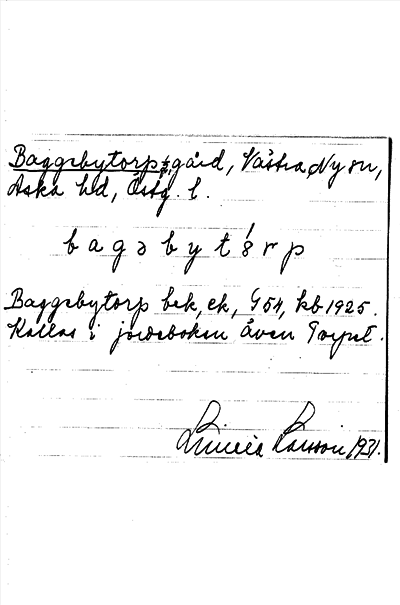 Baggebytorp, gård, Västra Ny sn,
Aska hd, Östg. l.
bagəbytórp
Baggebytorp bek, ek, G 54, kb 1925.
Kallas i jordeboken även Torpet.
Linnéa Larsson 1931.